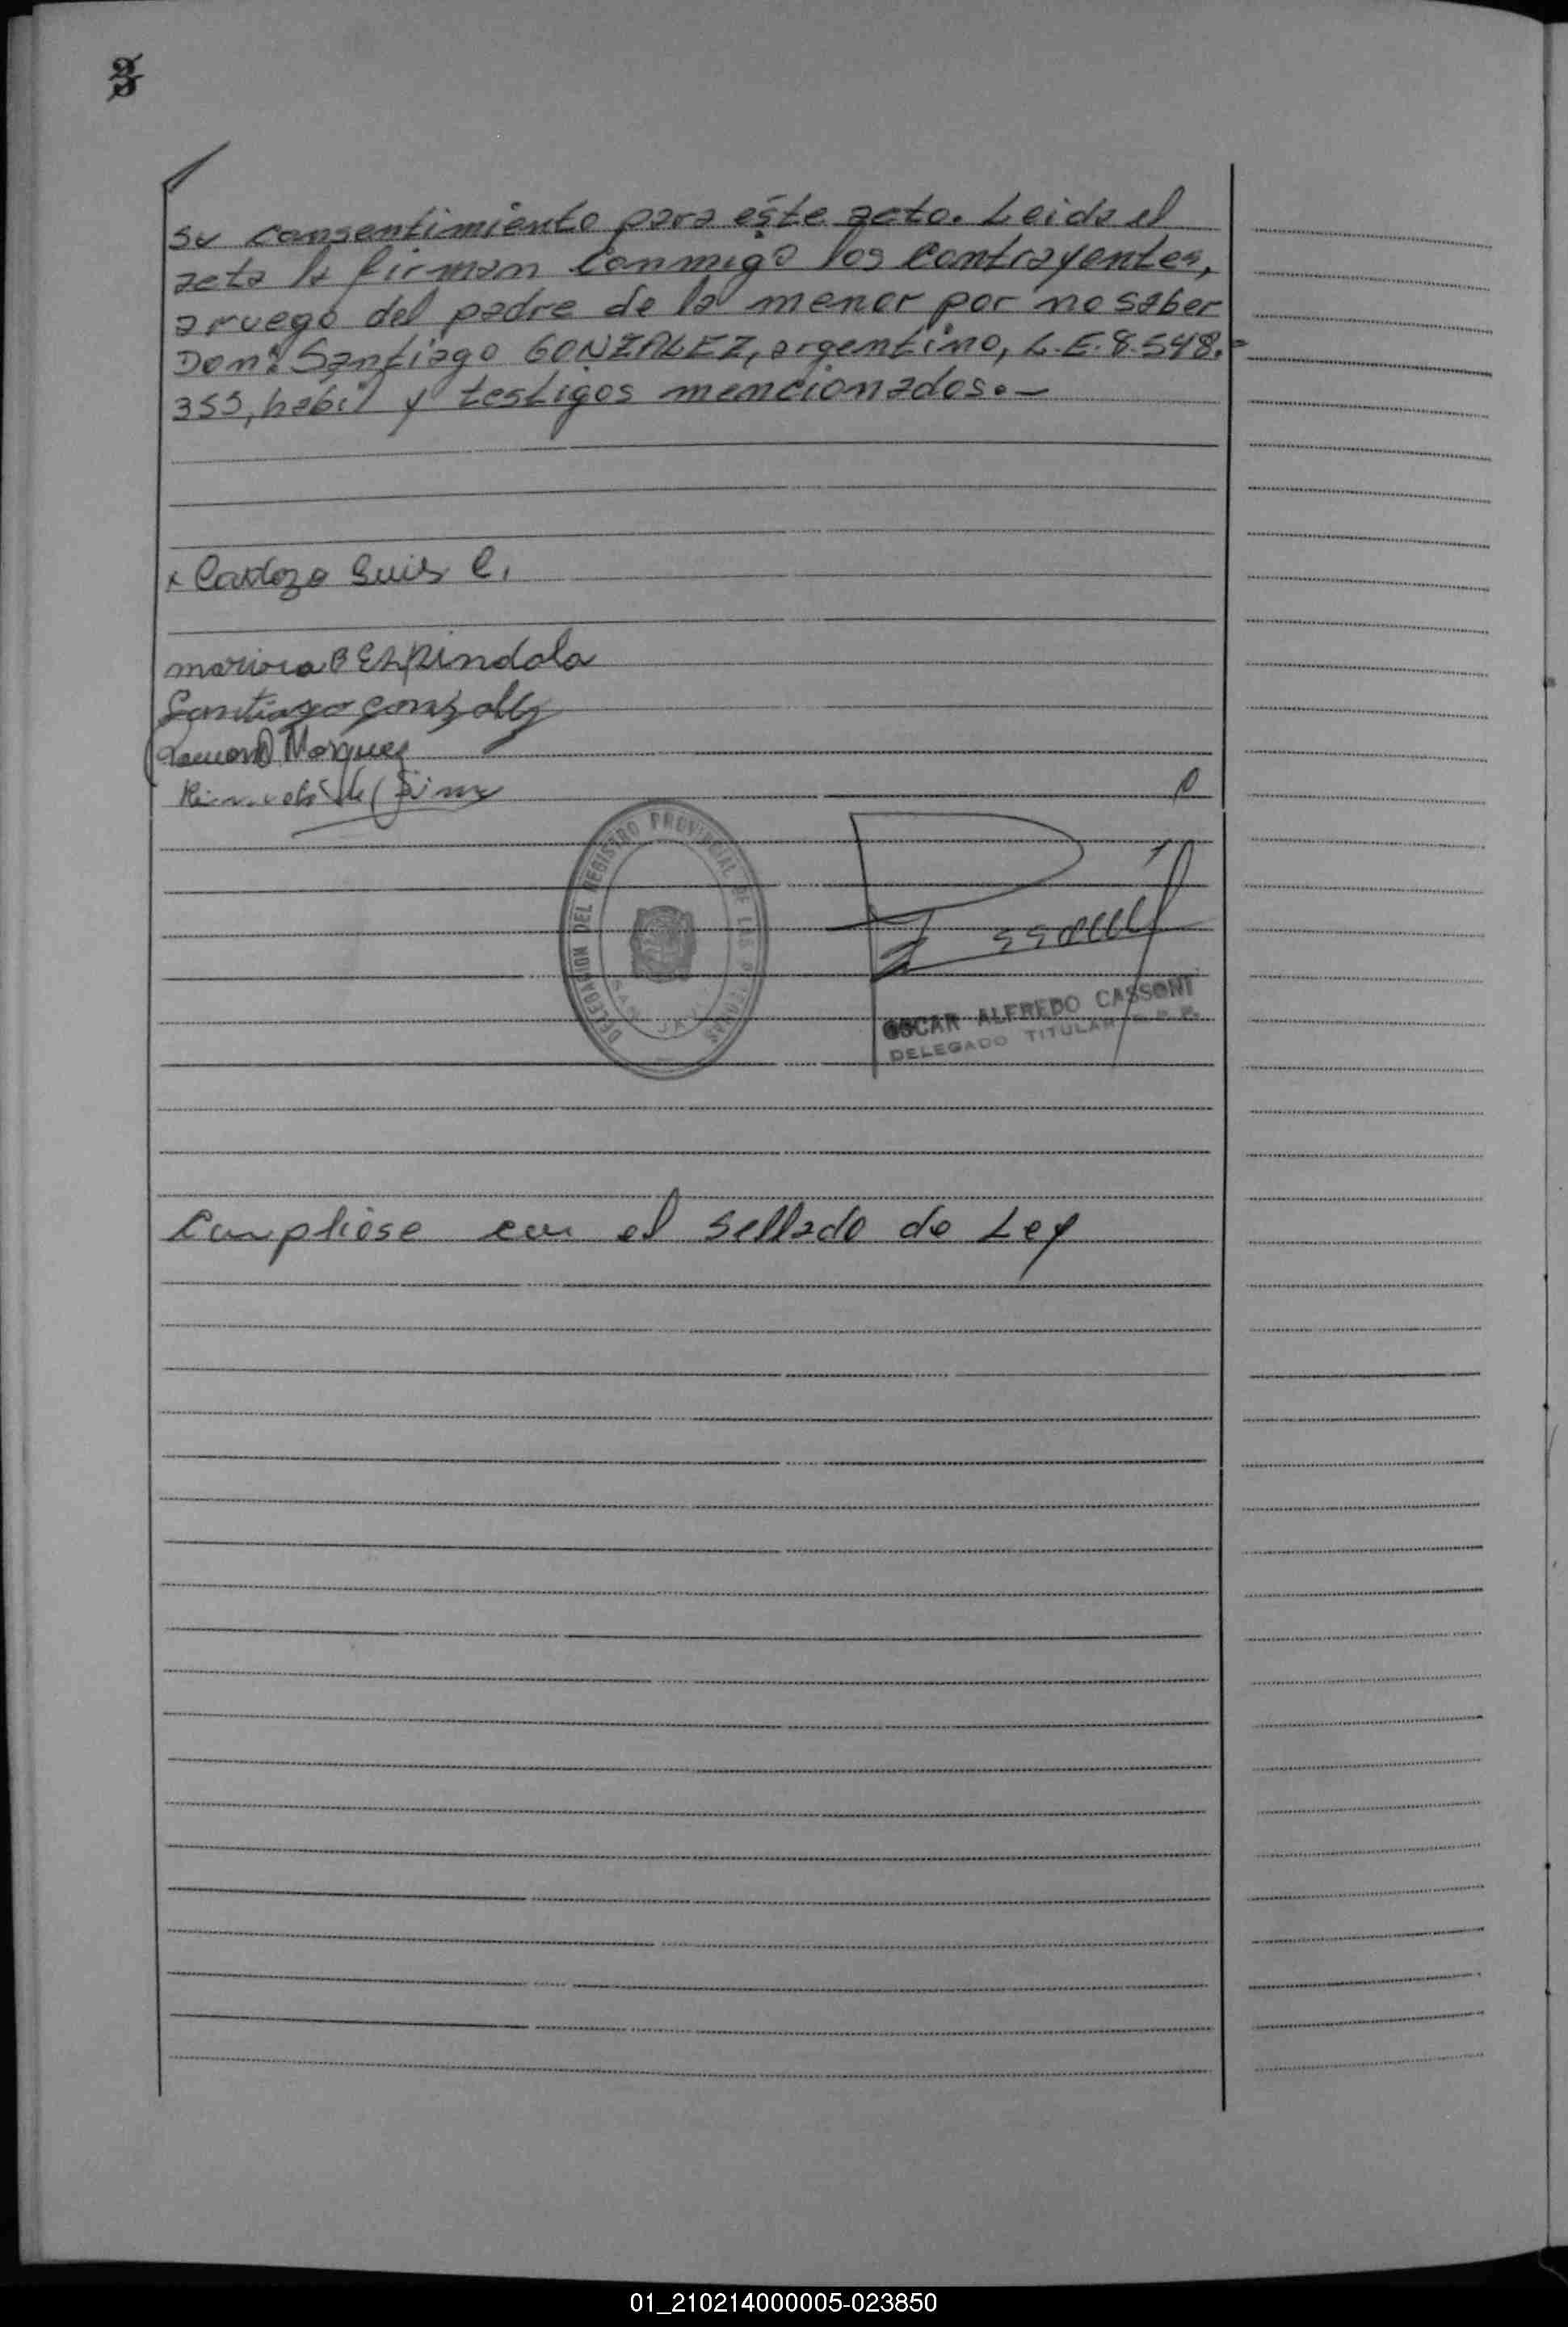 3
su consentimiento para este acto. Leida el
acta la firman conmigo los contrayentes,
a ruego del padre de la menor por no saber
Don: Santiago GONZALEZ, argentino, L.E. 8.548.=
355, habil y testigos mencionados.—
x Cardozo Luis C.
mariana B Espindola
Santiago Gonzalez
Ramon Marquez
DELEGACION DEL REGISTRO PROVINCIAL DE LAS PERSONAS
SAN JAVIER
OSCAR ALFREDO CASSONI
DELEGADO TITULAR R. P. P.
Cumpliose con el sellado de Ley
01_210214000005-023850